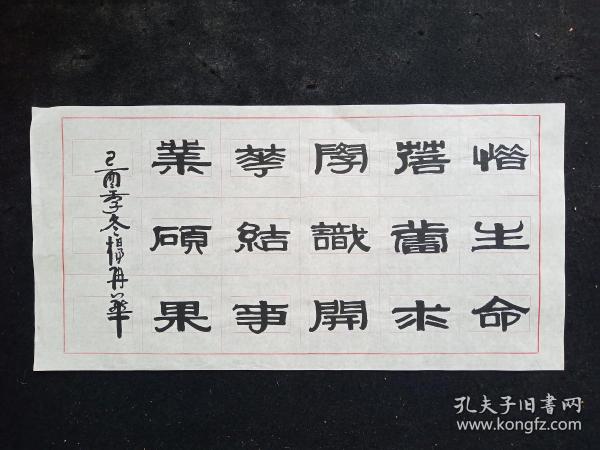 惜生命
蓓蕾求
學識開
華結事
業碩果
己酉季冬再華
孔夫子旧書网
www.kongfz.com